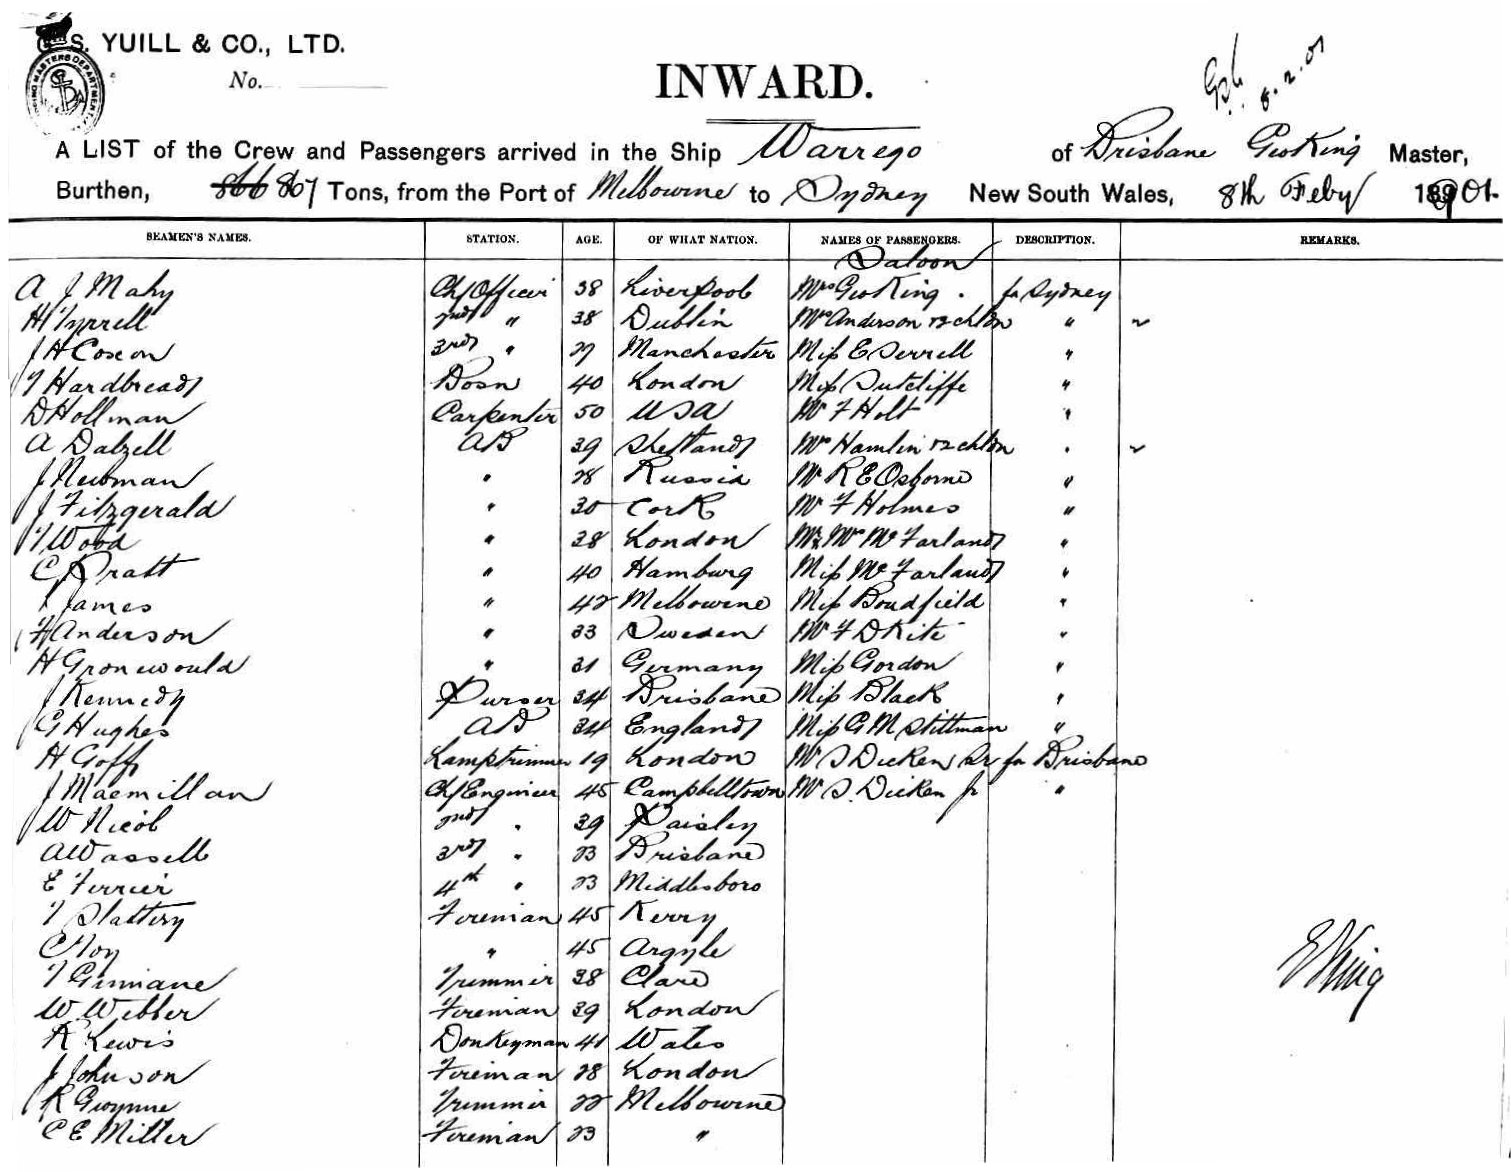 G. S. YUILL & CO., LTD.
No.
INWARD.
8.2.01
A LIST of the Crew and Passengers arrived in the Ship Warrego of Brisbane Geo King Master,
Burthen, 866 867 Tons, from the Port of Melbourne to Sydney New South Wales, 8th Feby 1901.
SEAMEN'S NAMES. STATION. AGE. OF WHAT NATION. NAMES OF PASSENGERS. DESCRIPTION. REMARKS.
Saloon
A J Mahy Ch/Officer 38 Liverpool Mrs Geo King. for Sydney
H Tyrrell 2nd " 38 Dublin Mrs Anderson & 2 chldn "
J H Coxon 3rd " 27 Manchester Miss E Serrell "
T Hardbread Bosn 40 London Miss Sutcliffe "
D Hollman Carpenter 50 USA Mr F Holt "
A Dalzell AB 39 Shetland Mrs Hamlin & 2 chldn "
J Newman " 28 Russia Mr R E Osborne "
J Fitzgerald " 30 Cork Mr F Holmes "
T Wood " 38 London Mr & Mrs McFarland "
C Pratt " 40 Hamburg Miss McFarland "
James " 42 Melbourne Miss Broadfield "
F Anderson " 33 Sweden Mr F D Kite "
H Gronewould " 31 Germany Miss Gordon "
J Kennedy Purser 34 Brisbane Miss Black "
G Hughes AB 34 England Miss G M Stittman "
H Goff Lamptrimmer 19 London Mr S Dicken Sr for Brisbane
J Macmillan Ch/Engineer 45 Campbelltown Mr S. Dicken Jr "
W Nicol 2nd " 39 Paisley
A Wassell 3rd " 23 Brisbane
E Ferrier 4th " 23 Middlesboro
T Slattery Fireman 45 Kerry
C Foy " 45 Argyle
T Ginnane Trimmer 38 Clare
W Webber Fireman 39 London
R Lewis Donkeyman 41 Wales
J Johnson Fireman 28 London
R Gwynne Trimmer 22 Melbourne
C E Miller Fireman 23 "
G King